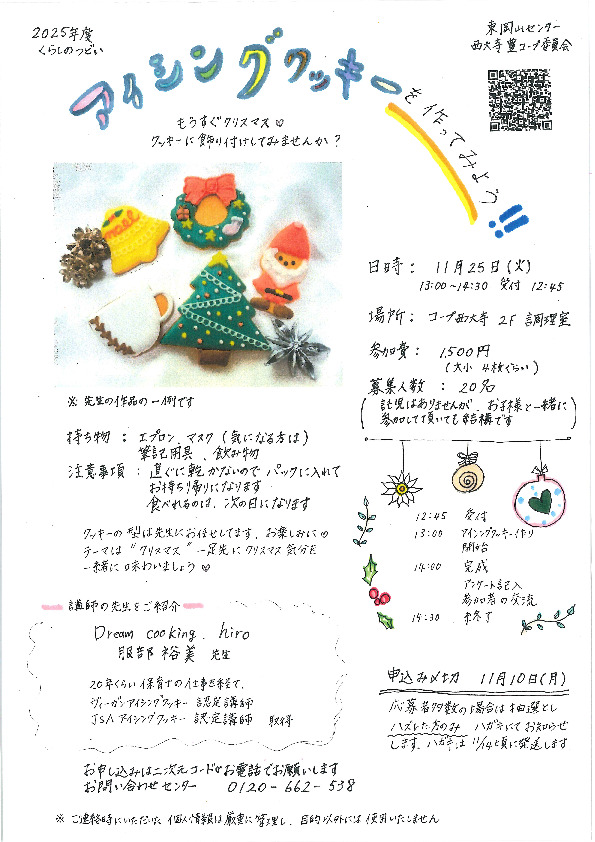 2025年度
くらしのつどい
東岡山センター
西大寺 豊コープ委員会
アイシングクッキーを作ってみよう!!
もうすぐクリスマス♡
クッキーに飾り付けしてみませんか?
noel
※ 先生の作品の一例です
日時: 11月25日(火)
13:00〜14:30 受付 12:45
場所: コープ西大寺 2F 調理室
参加費: 1,500円
(大小 4枚ぐらい)
募集人数: 20名
(託児はありませんが、お子様と一緒に
参加して頂いても結構です)
持ち物: エプロン、マスク(気になる方は)
筆記用具、飲み物
注意事項: 直ぐに乾かないので パックに入れて
お持ち帰りになります
食べれるのは、次の日になります
クッキーの型は先生にお任せしてます、お楽しみに♡
テーマは"クリスマス" 一足先にクリスマス気分を
一緒に味わいましょう♡
12:45 受付
13:00 アイシングクッキー作り
開始
14:00 完成
アンケート記入
参加者の交流
14:30 終了
講師の先生をご紹介
Dream cooking. hiro
服部 裕美 先生
20年くらい保育士の仕事を経て、
ヴィーガンアイシングクッキー 認定講師
JSAアイシングクッキー 認定講師 取得
申込み〆切 11月10日(月)
応募者多数の場合は抽選とし
ハズレた方のみ ハガキにてお知らせ
します、ハガキは 11/14頃に発送します
お申し込みは二次元コードかお電話でお願いします
お問い合わせセンター 0120-662-538
※ ご連絡時にいただいた個人情報は厳重に管理し、目的以外には使用いたしません